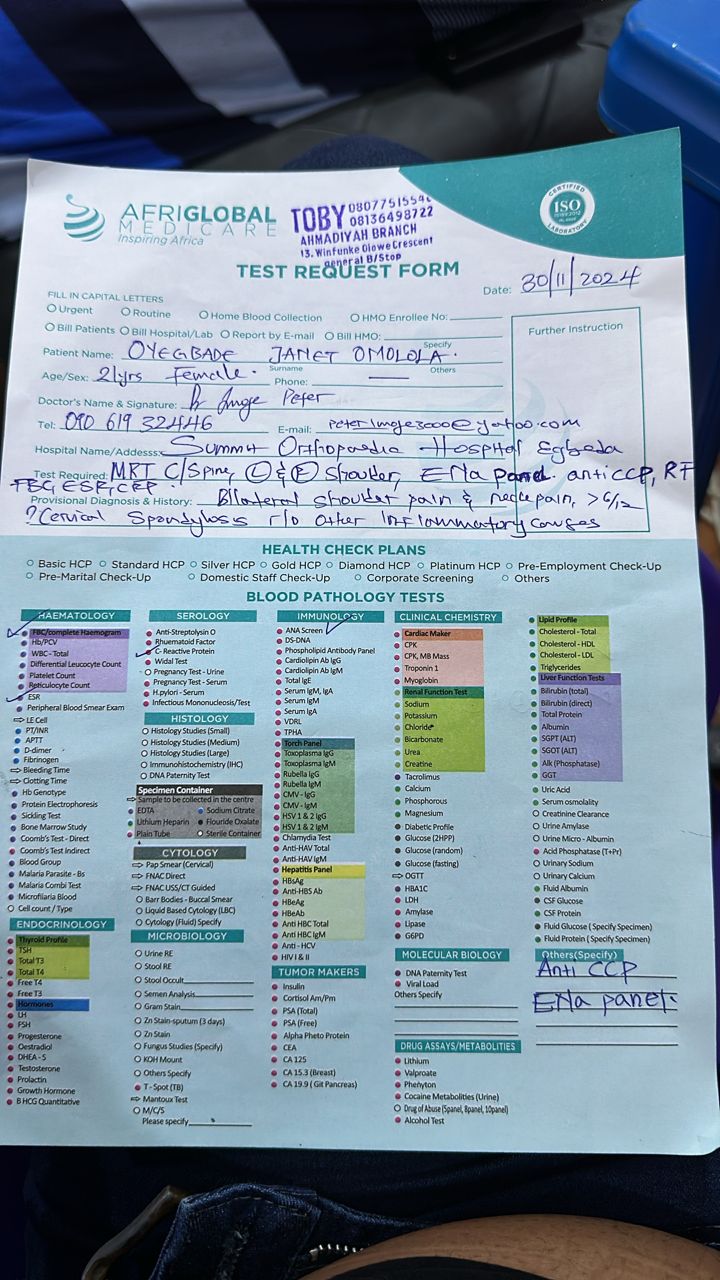 AFRIGLOBAL
MEDICARE
Inspiring Africa
TOBY 0807751554
08136498722
AHMADIYAH BRANCH
13. Winfunke Olowe Crescent
general B/Stop
CERTIFIED
ISO
LABORATORY
TEST REQUEST FORM
Date: 30/11/2024
FILL IN CAPITAL LETTERS
Urgent Routine Home Blood Collection HMO Enrollee No:
Bill Patients Bill Hospital/Lab Report by E-mail Bill HMO:
Specify
Further Instruction
Patient Name: OYEGBADE JANET OMOLOLA.
Surname Others
Age/Sex: 21yrs Female. Phone: —
Doctor's Name & Signature: Dr Peter
Tel: 090 619 32446 E-mail:
Hospital Name/Addresss: Summit Orthopaedic Hospital Egbeda
Test Required: MRI C/Spine, L & R Shoulder, ENA panel. anti CCP, RF
FBC, ESR, CRP.
Provisional Diagnosis & History: Bilateral shoulder pain & neck pain, >6/12
?Cervical Spondylosis r/o other Inflammatory causes
HEALTH CHECK PLANS
Basic HCP Standard HCP Silver HCP Gold HCP Diamond HCP Platinum HCP Pre-Employment Check-Up
Pre-Marital Check-Up Domestic Staff Check-Up Corporate Screening Others
BLOOD PATHOLOGY TESTS
HAEMATOLOGY
FBC/complete Haemogram
Hb/PCV
WBC - Total
Differential Leucocyte Count
Platelet Count
Reticulocyte Count
ESR
Peripheral Blood Smear Exam
LE Cell
PT/INR
APTT
D-dimer
Fibrinogen
Bleeding Time
Clotting Time
Hb Genotype
Protein Electrophoresis
Sickling Test
Bone Marrow Study
Coomb's Test - Direct
Coomb's Test Indirect
Blood Group
Malaria Parasite - Bs
Malaria Combi Test
Microfilaria Blood
Cell count / Type
ENDOCRINOLOGY
Thyroid Profile
TSH
Total T3
Total T4
Free T4
Free T3
Hormones
LH
FSH
Progesterone
Oestradiol
DHEA - S
Testosterone
Prolactin
Growth Hormone
B HCG Quantitative
SEROLOGY
Anti-Streptolysin O
Rhuematoid Factor
C- Reactive Protein
Widal Test
Pregnancy Test - Urine
Pregnancy Test - Serum
H.pylori - Serum
Infectious Mononucleosis/Test
HISTOLOGY
Histology Studies (Small)
Histology Studies (Medium)
Histology Studies (Large)
Immunohistochemistry (IHC)
DNA Paternity Test
Specimen Container
Sample to be collected in the centre
EDTA Sodium Citrate
Lithium Heparin Flouride Oxalate
Plain Tube Sterile Container
CYTOLOGY
Pap Smear (Cervical)
FNAC Direct
FNAC USS/CT Guided
Barr Bodies - Buccal Smear
Liquid Based Cytology (LBC)
Cytology (Fluid) Specify
MICROBIOLOGY
Urine RE
Stool RE
Stool Occult
Semen Analysis
Gram Stain
Zn Stain-sputum (3 days)
Zn Stain
Fungus Studies (Specify)
KOH Mount
Others Specify
T - Spot (TB)
Mantoux Test
M/C/S
Please specify
IMMUNOLOGY
ANA Screen
DS-DNA
Phospholipid Antibody Panel
Cardiolipin Ab IgG
Cardiolipin Ab IgM
Total IgE
Serum IgM, IgA
Serum IgM
Serum IgA
VDRL
TPHA
Torch Panel
Toxoplasma IgG
Toxoplasma IgM
Rubella IgG
Rubella IgM
CMV - IgG
CMV - IgM
HSV 1 & 2 IgG
HSV 1 & 2 IgM
Chlamydia Test
Anti-HAV Total
Anti-HAV IgM
Hepatitis Panel
HBsAg
Anti-HBS Ab
HBeAg
HBeAb
Anti HBC Total
Anti HBC IgM
Anti - HCV
HIV I & II
TUMOR MAKERS
Insulin
Cortisol Am/Pm
PSA (Total)
PSA (Free)
Alpha Pheto Protein
CEA
CA 125
CA 15.3 (Breast)
CA 19.9 ( Git Pancreas)
CLINICAL CHEMISTRY
Cardiac Maker
CPK
CPK, MB Mass
Troponin 1
Myoglobin
Renal Function Test
Sodium
Potassium
Chloride
Bicarbonate
Urea
Creatine
Tacrolimus
Calcium
Phosphorous
Magnesium
Diabetic Profile
Glucose (2HPP)
Glucose (random)
Glucose (fasting)
OGTT
HBA1C
LDH
Amylase
Lipase
G6PD
MOLECULAR BIOLOGY
DNA Paternity Test
Viral Load
Others Specify
DRUG ASSAYS/METABOLITIES
Lithium
Valproate
Phenyton
Cocaine Metabolities (Urine)
Drug of Abuse (5panel, 8panel, 10panel)
Alcohol Test
Lipid Profile
Cholesterol - Total
Cholesterol - HDL
Cholesterol - LDL
Triglycerides
Liver Function Tests
Bilirubin (total)
Bilirubin (direct)
Total Protein
Albumin
SGPT (ALT)
SGOT (ALT)
Alk (Phosphatase)
GGT
Uric Acid
Serum osmolality
Creatinine Clearance
Urine Amylase
Urine Micro - Albumin
Acid Phosphatase (T+Pr)
Urinary Sodium
Urinary Calcium
Fluid Albumin
CSF Glucose
CSF Protein
Fluid Glucose ( Specify Specimen)
Fluid Protein ( Specify Specimen)
Others(Specify)
Anti CCP
ENa panel.